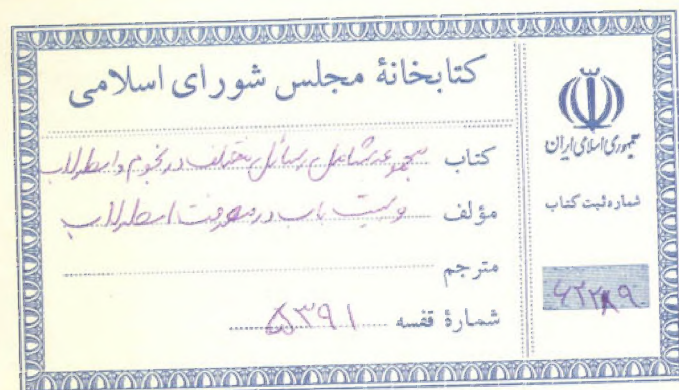 کتابخانهٔ مجلس شورای اسلامی
کتاب مجموعه شامل رسائل مختلف در نجوم و اسطرلاب
مؤلف و بیست باب در معرفت اسطرلاب
مترجم
شمارهٔ قفسه ۵۳۹۱
جمهوری اسلامی ایران
شماره ثبت کتاب